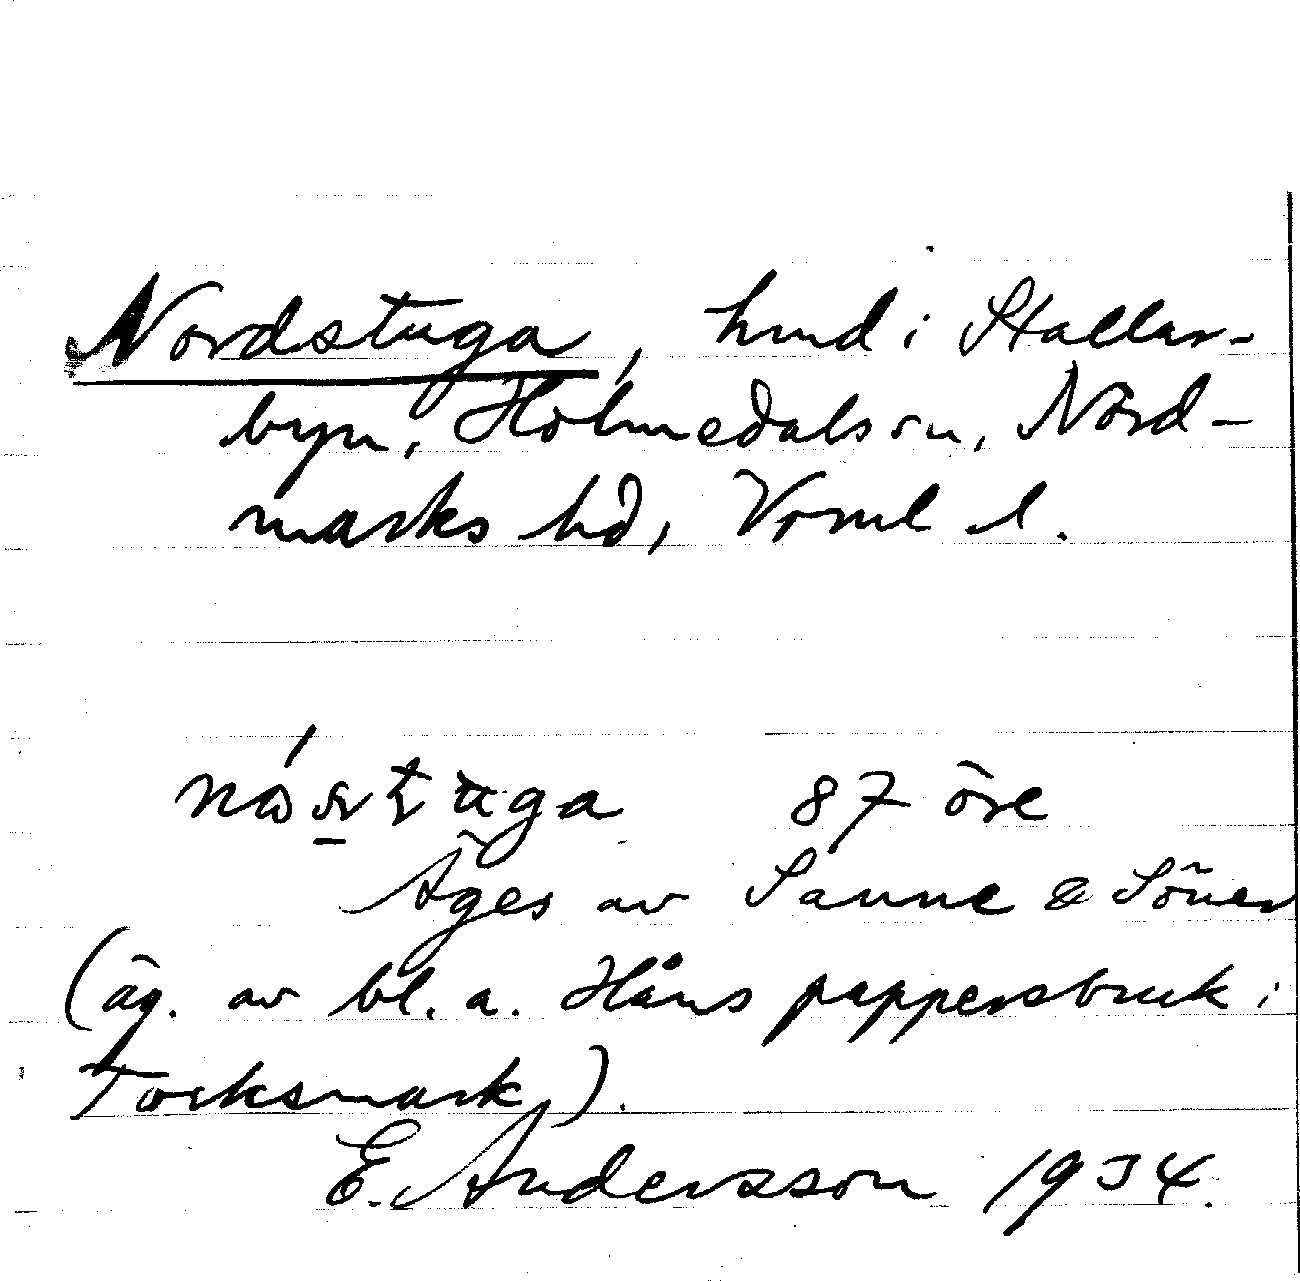 Nordstuga, hmd i Stallar-
byn, Holmedals sn, Nord-
marks hd, Vrml l.
87 öre
Äges av Sanne & Söner
(äg. av bl. a. Håns pappersbruk i
Töcksmark).
E. Andersson 1934.